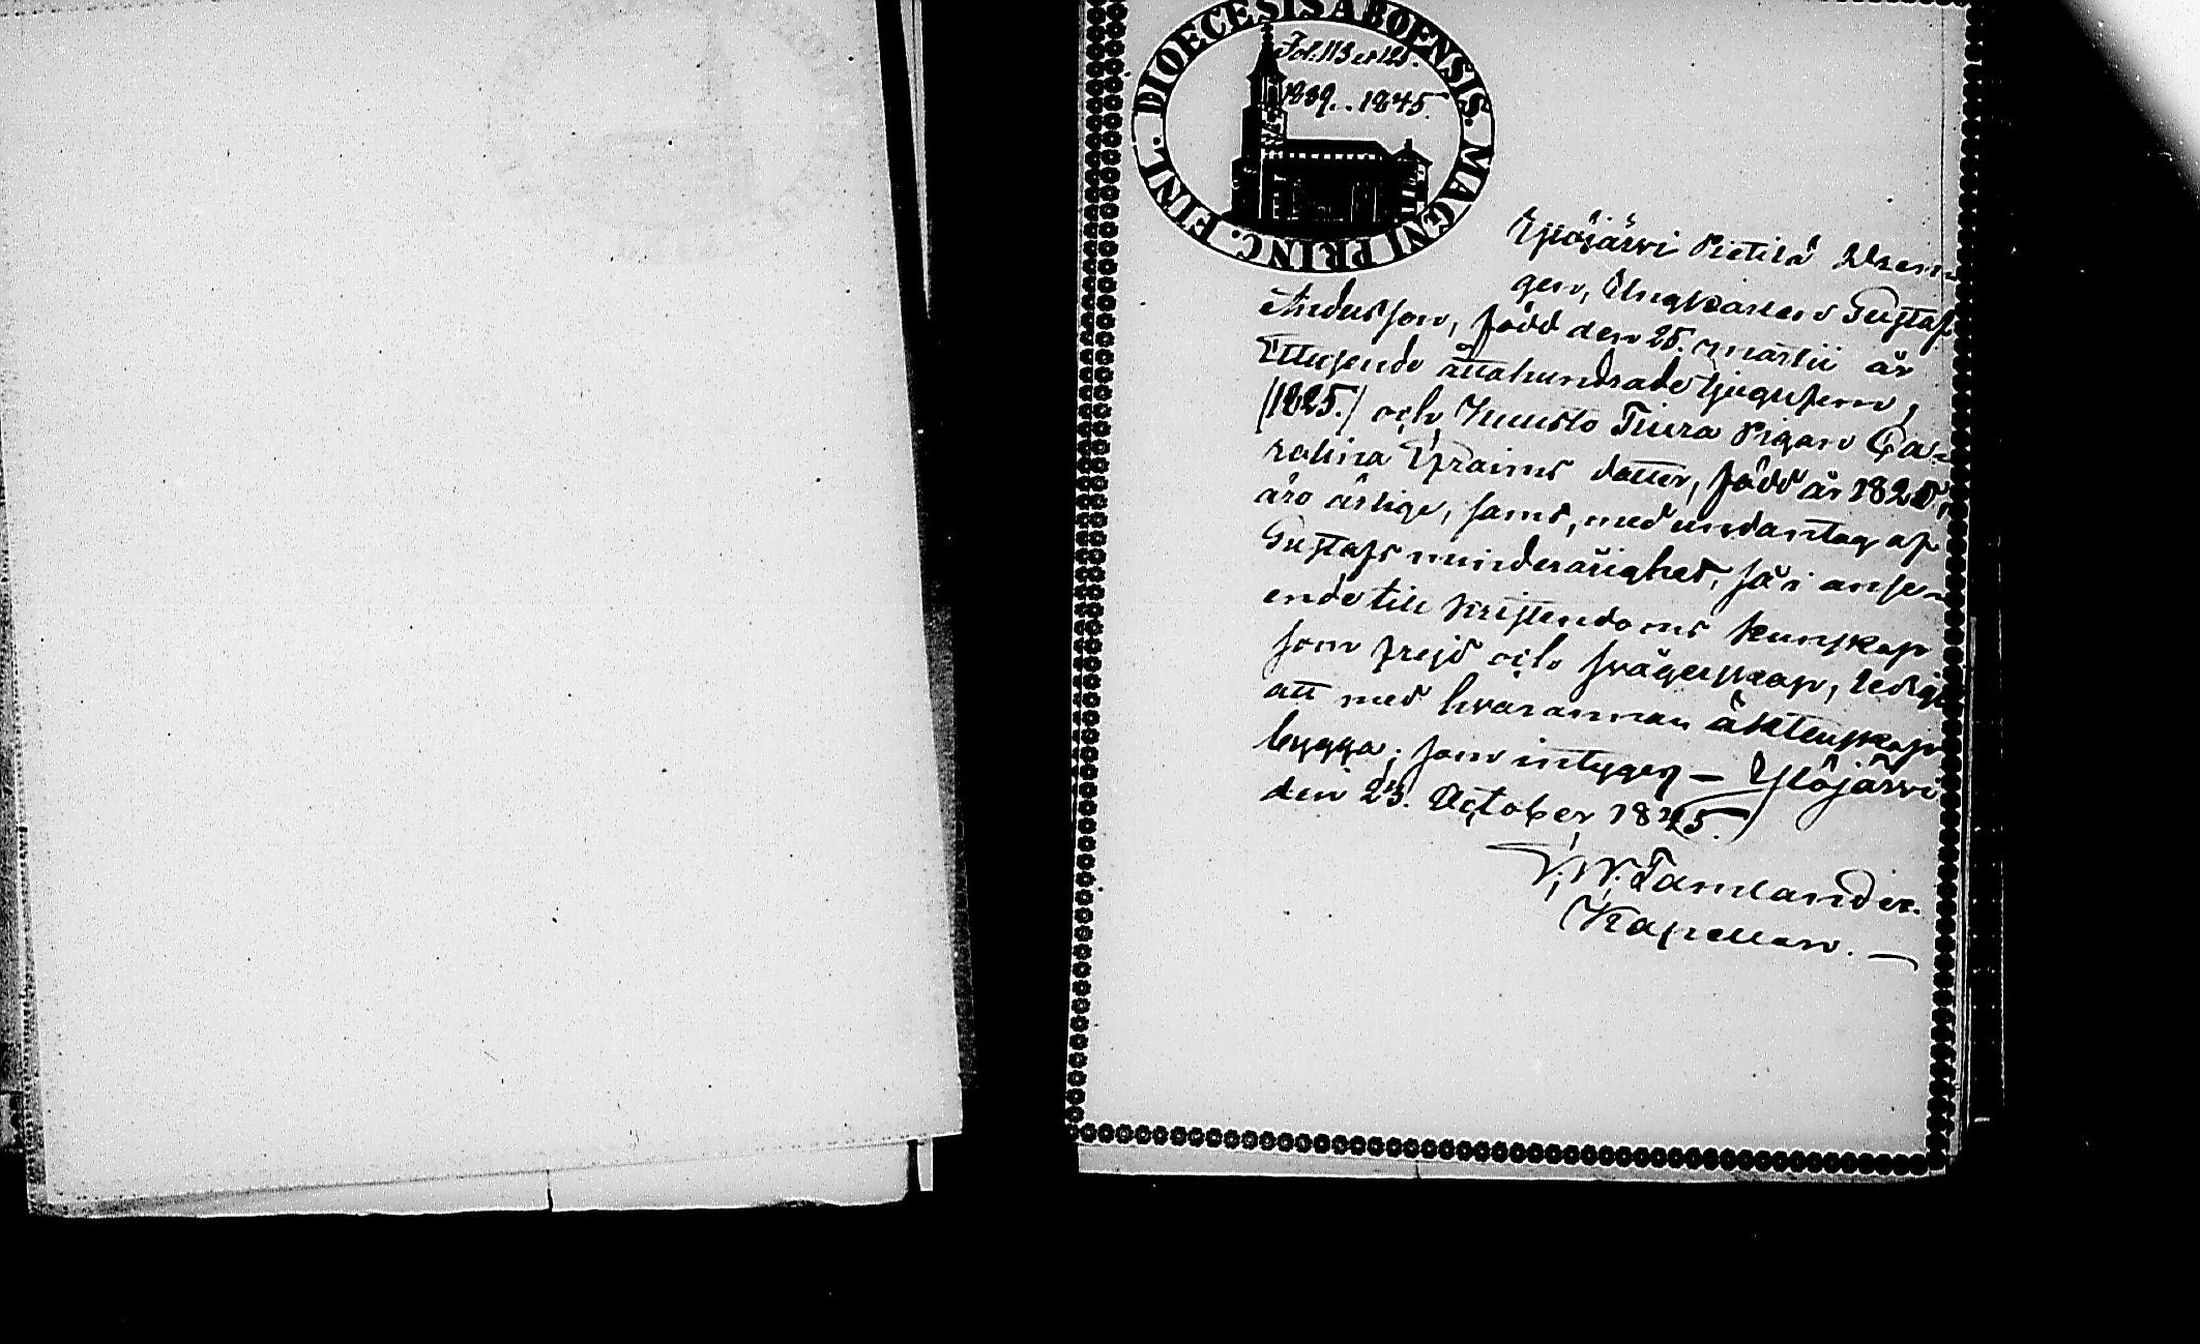 DIOECESIS ABOENSIS. MAGNI PRINC. FINL.
Fol. 113 et 125.
1839..1845.
Ylöjärvi Pietilä Dren-
gen, Ungkarlen Gustaf
Andersson, född den 25. martii år
Ettusende åttahundrade tjugufem,
(1825.) och Kuusto Tiura Pigan Ca-
rolina Efraims dotter, född år 1820,
äro ärlige, samt, med undantag af
Gustafs minderårighet, så i anse-
ende till kristendoms kunskap
som frejd och svågerskap, ledige
att med hvarannan äktenskap
bygga; som intygas — Ylöjärvi
den 23. October 1845.
Tamlander.
Kapellan. —